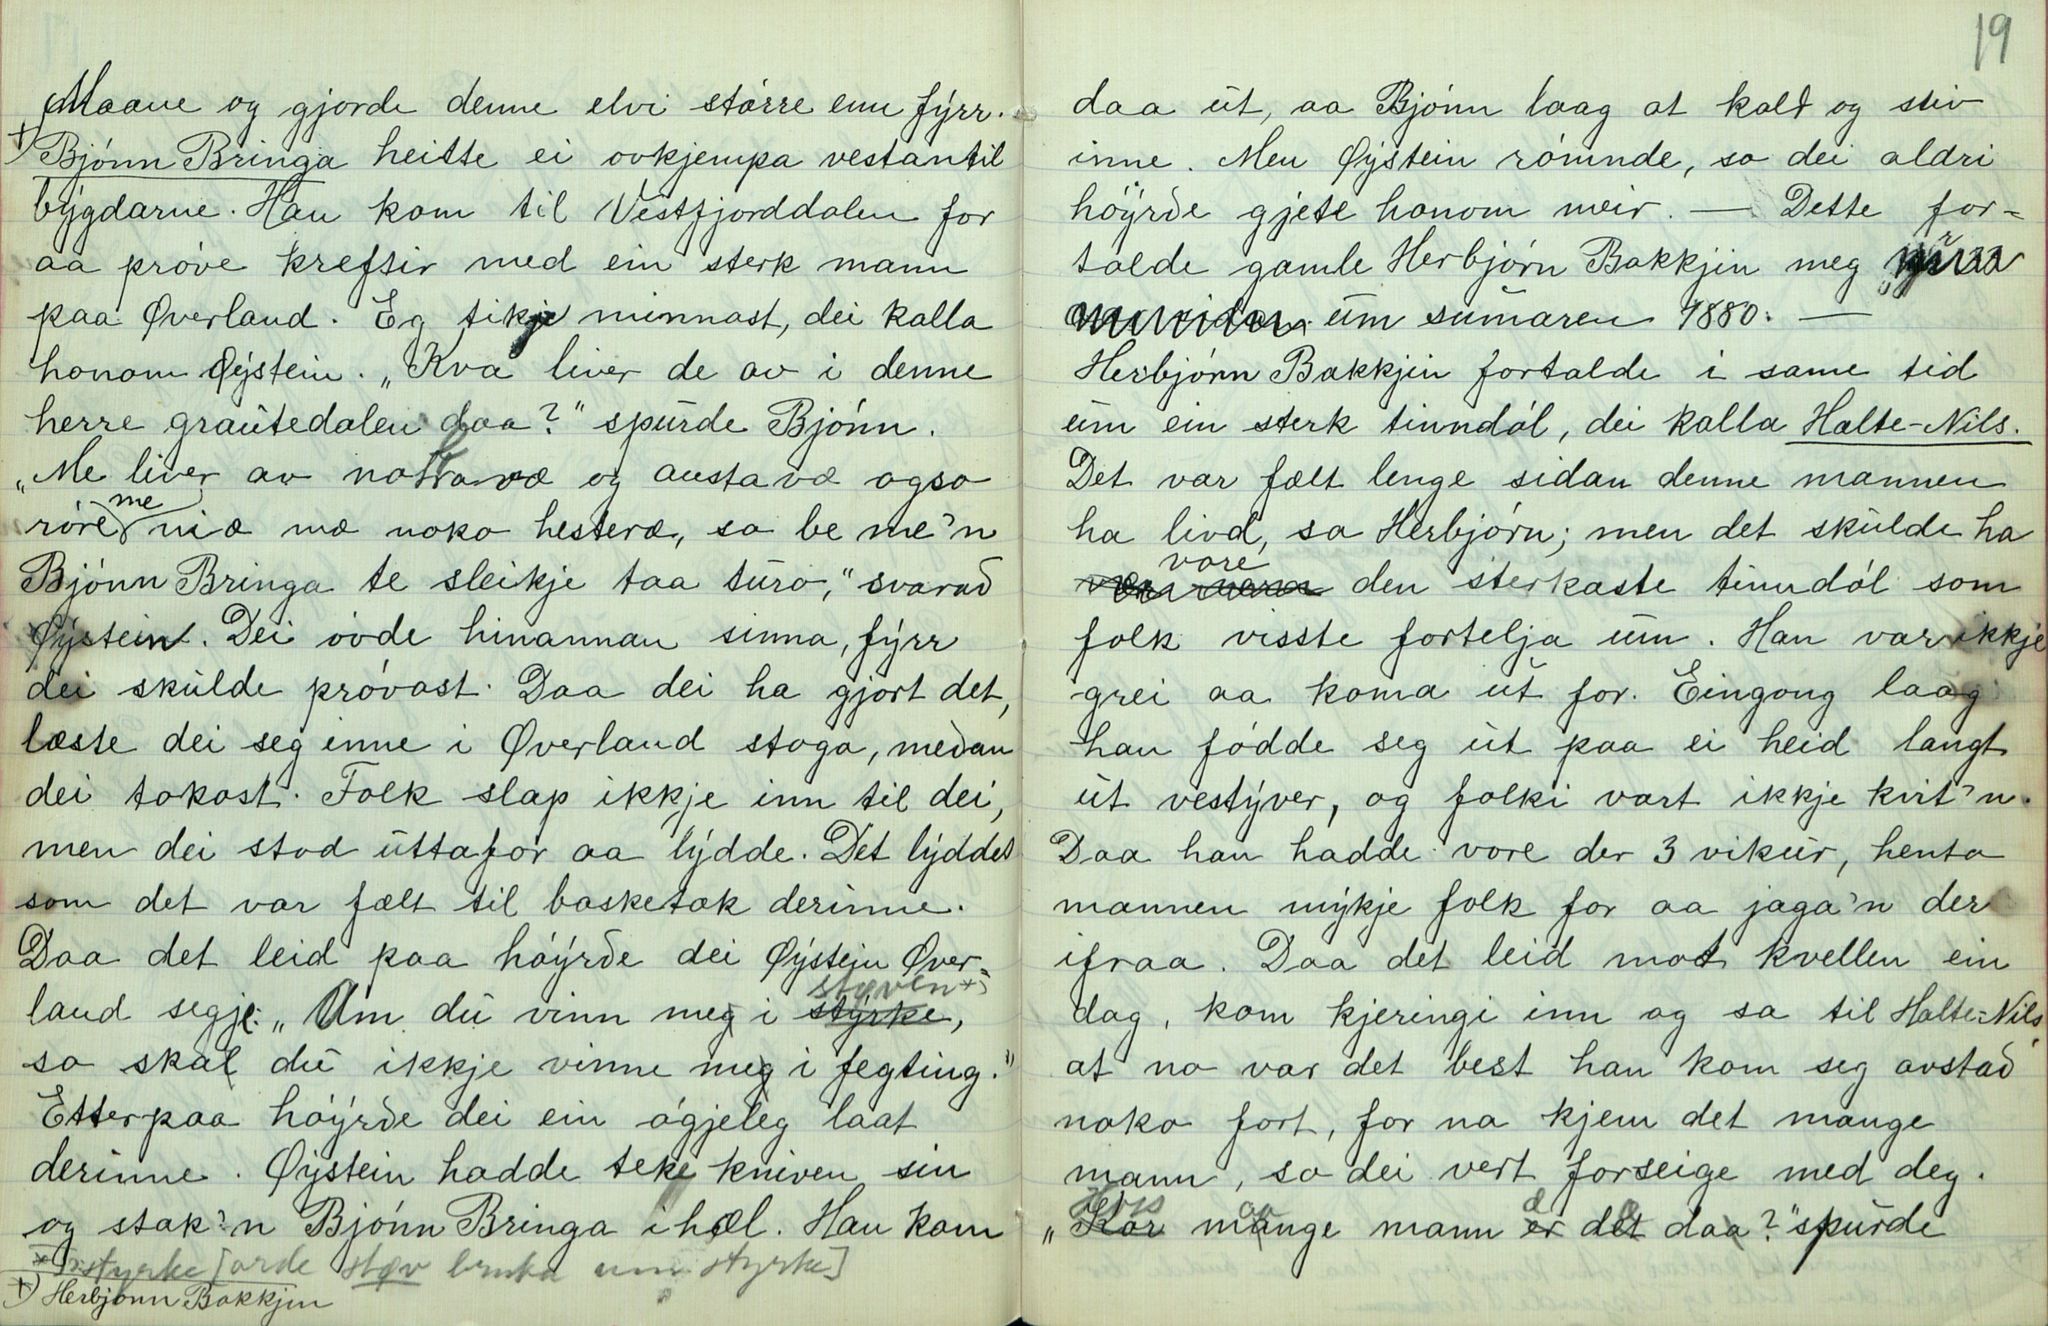 Maane og gjorde denne elvi större enn fýrr.
+) Bjónn Bringa heitte ei ovkjempa vestantil
býgdarne. Han kom til Vestfjorddalen for
aa próve kreftir med ein sterk mann
paa Øverland. Eg fikje minnast, dei kalla
honom Øýstein. „Kva liver de av i denne
herre grautedalen daa?" spurde Bjónn.
„Me liver av notravæ og austavæ ogso
róre me niæ mæ noko hesteræ, so be me'n
Bjónn Bringa te sleikje taa turo," svarað
Øýstein. Dei óvde hinannan sinna, fýrr
dei skulde próvast. Daa dei ha gjort det,
læste dei seg inne i Øverland stoga, meðan
dei tokost. Folk slap ikkje inn til dei,
men dei stod uttafor aa lýdde. Det lýddest
som det var fælt til basketak derinne.
Daa det leid paa hóýrðe dei Øýstein Øver-
land segje: „Um du vinn meg i styrke, støven *)
so skal du ikkje vinne meg i fegting."
Etterpaa hóýrðe dei ein ógjeleg laat
derinne. Øýstein hadde teke kniven sin
og stak'n Bjónn Bringa ihæl. Han kom
*) styrke [orde støv bruka um styrke]
+) Herbjónn Bakkjen
19
daa ut, aa Bjónn laag at kald og stiv
inne. Men Øýstein rómnde, so dei aldri
hóýrðe gjete honom meir. — Dette for-
talde gamle Herbjórn Bakkjin meg
um sumaren 1880. —
Herbjórn Bakkjin fortalde i same tid
um ein sterk tinndól, dei kalla Halte-Nils.
Det var fælt lenge sidan denne mannen
ha livd, sa Herbjórn; men det skulde ha
vore den sterkaste tinndól som
folk visste fortelja um. Han var ikkje
grei aa koma ut for. Eingong laag
han fódde seg ut paa ei heid langt
ut vestýver, og folki vart ikkje kvit'n.
Daa han hadde vore der 3 vikur, henta
mannen mýkje folk for aa jaga'n der
ifraa. Daa det leid mot kvellen ein
dag, kom kjeringi inn og sa til Halte-Nils
at no var det best han kom seg avstað
noko fort, for na kjem det mange
mann, so dei vert forseige med deg.
„Kor mange mann er det daa?" spurde